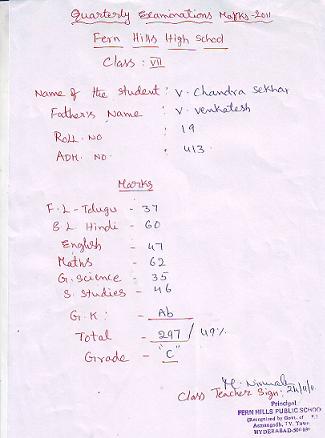 Quarterly Examinations Marks-2011
Fern Hills High School
Class : VII
Name of the student : V. Chandra Sekhar
Father's Name : V. Venkatesh
Roll. No : 19
Adm. No. : 413
Marks
F.L - Telugu - 37
B L Hindi - 60
English - 47
Maths - 62
G. Science - 35
S. Studies - 46
G.K : - Ab
Total - 297 / 49%
Grade - "C"
Class Teacher Sign:
Principal
FERN HILLS PUBLIC SCHOOL
(Recognised by Govt. of
HYDERABAD-500